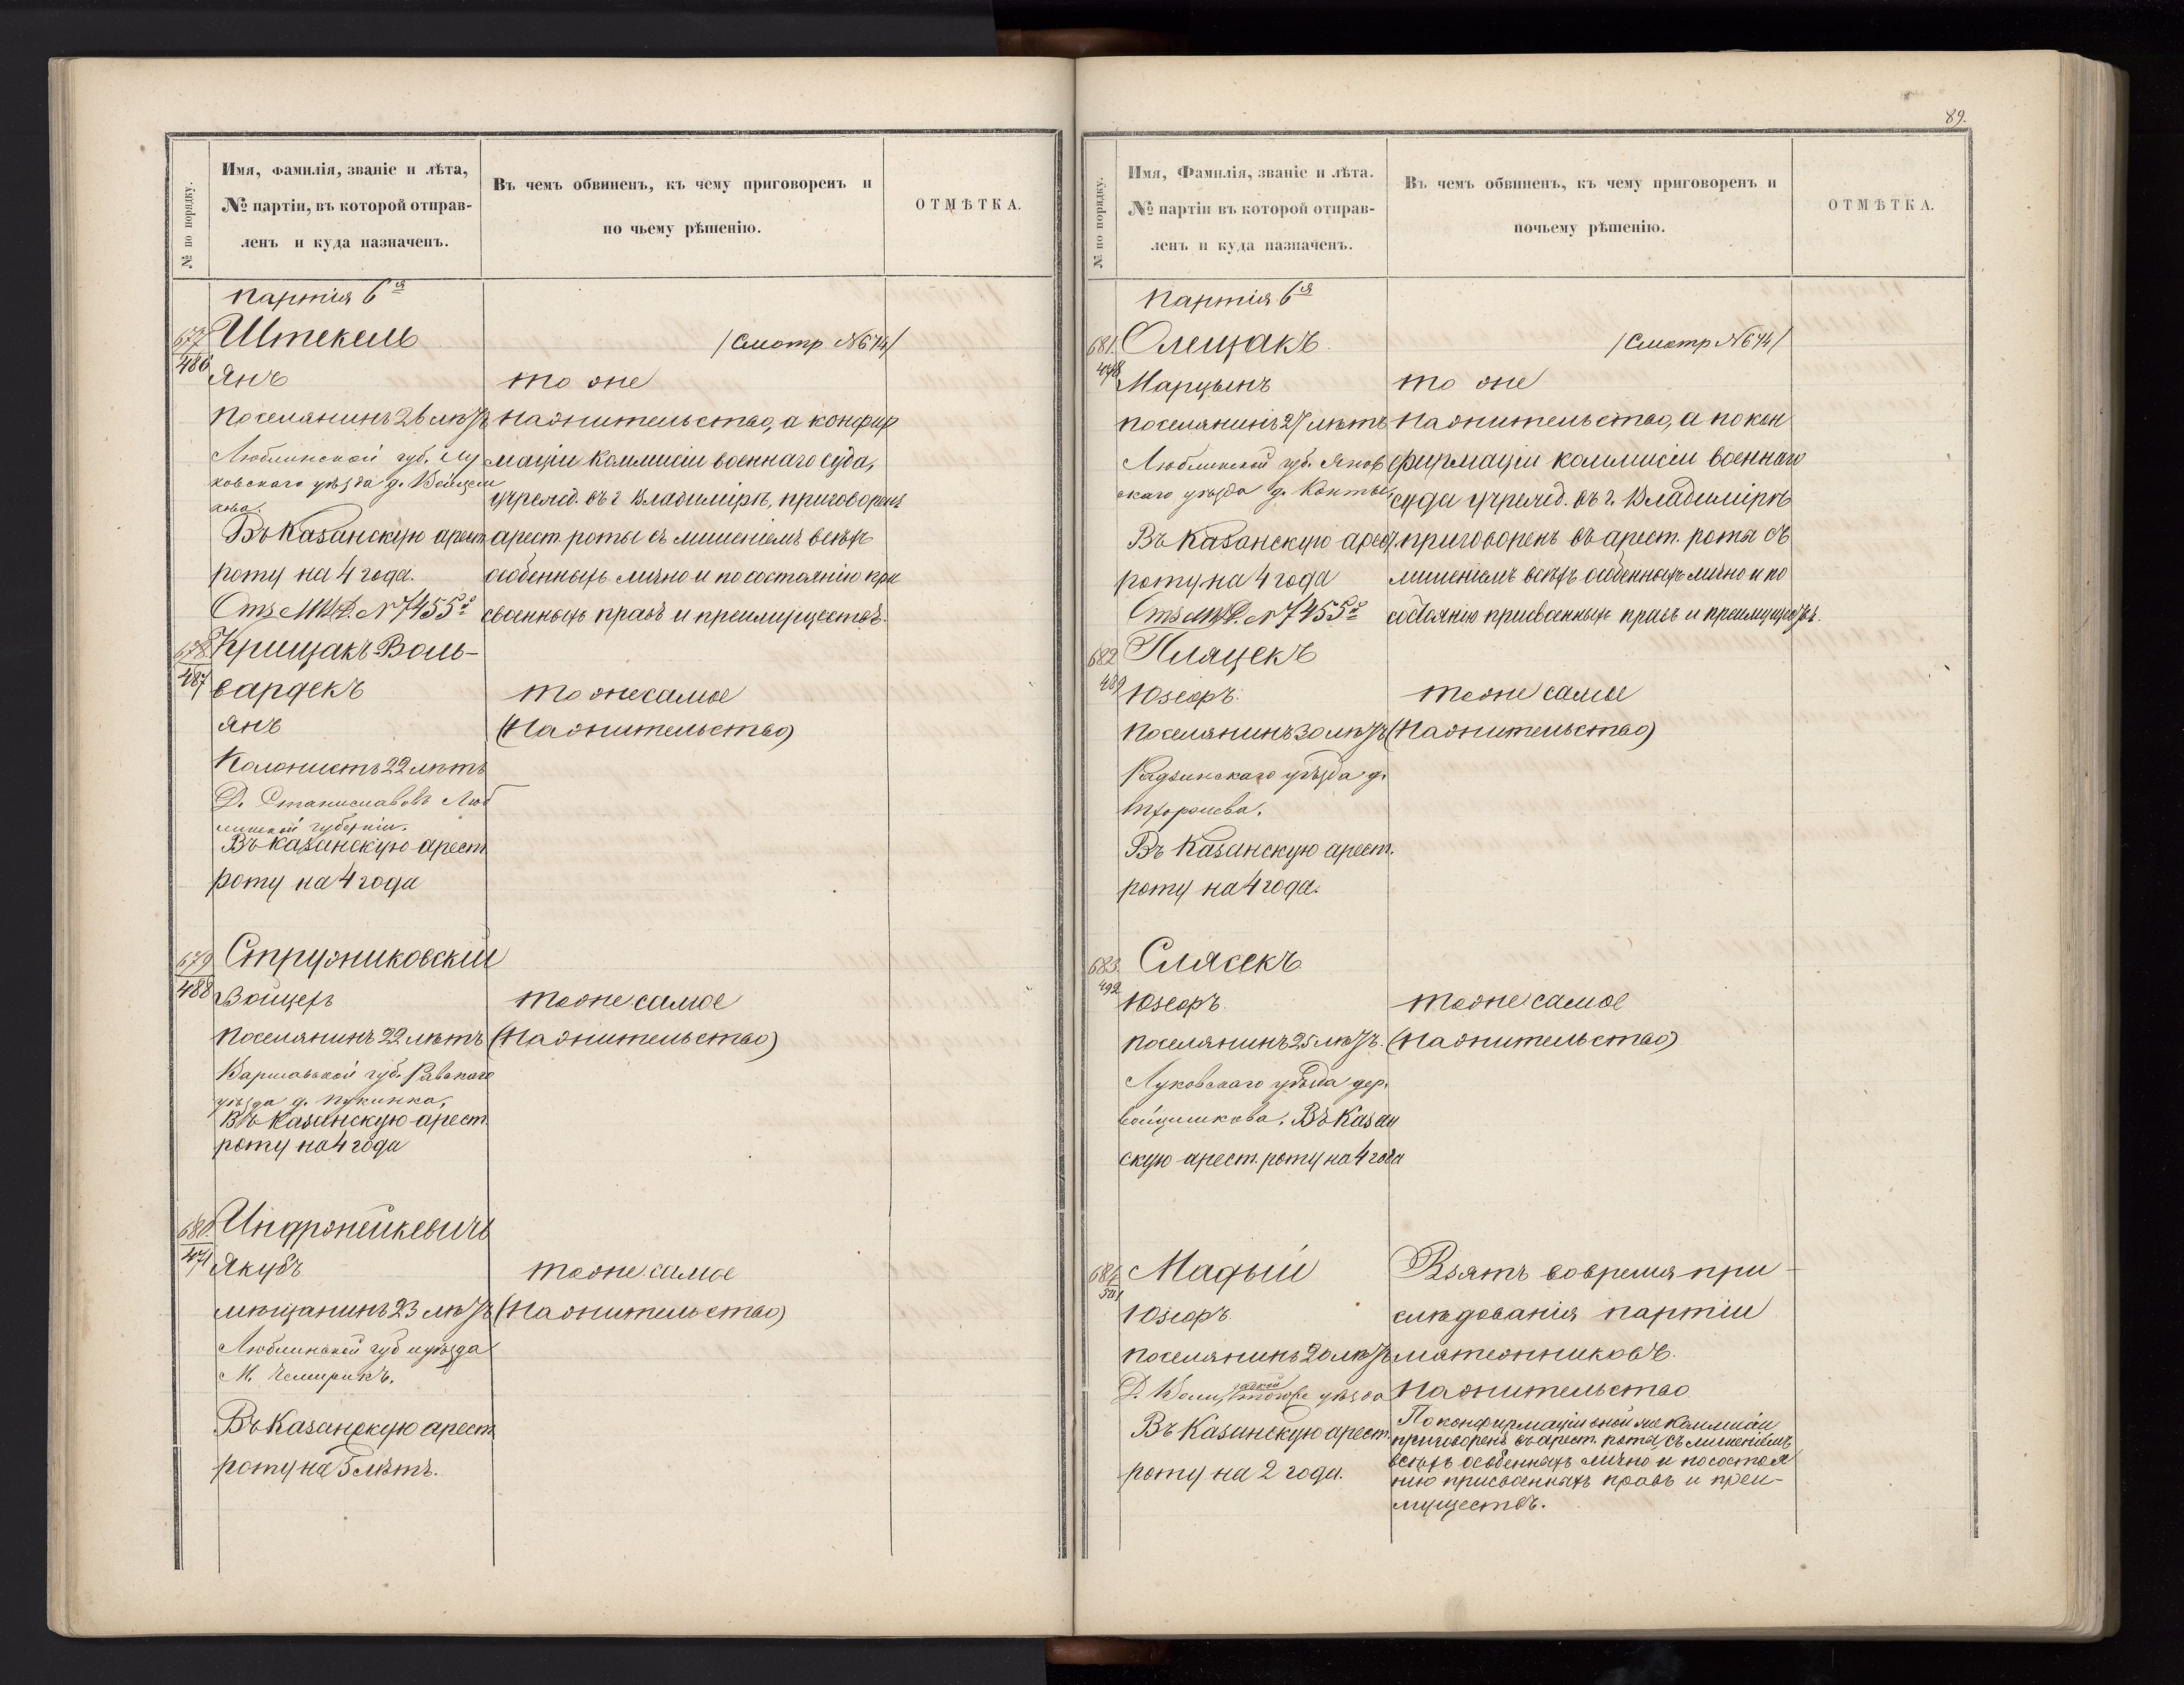 № по порядку.
Имя, фамилія, званіе и лѣта,
№ партіи, въ которой отправ-
ленъ и куда назначенъ.
Въ чемъ обвиненъ, къ чему приговоренъ и
по чьему рѣшенію.
ОТМѢТКА.
партія 6я
677
486
Штекель
/Смотр №674/
Янъ
то же
поселянинъ 26 лѣтъ
Люблинской губ. Лу
ковскаго уѣзда д.
Въ Казанскую арест
роту на 4 года.
Отз МВД. №7455
на жительство, а конфир
маціи коммисіи военнаго суда,
учрежд. въ г Владимірѣ, приговоренъ
арест роты съ лишеніемъ всѣхъ
особенныхъ лично и по состоянію при
своенныхъ правъ и преимуществъ.
678.
487
Крищакъ-Воль-
Янъ
то же самое
(На жительство)
Колонистъ 22 лѣтъ
Д. Станиславовъ Люб
линской губерніи.
Въ Казанскую арест
роту на 4 года
679
488
Стружниковскій
Войцехъ
то же самое
поселянинъ 22 лѣтъ
(На жительство)
Варшавской губ. Равскаго
уѣзда д.
Въ Казанскую арест
роту на 4 года
680.
471
Индржейкевичъ
Якубъ
то же самое
мѣщанинъ 23 лѣтъ
(На жительство)
Люблинской губ и уѣзда
М. Чемирикъ.
Въ Казанскую арест
роту на 5 лѣтъ.
89.
№ по порядку.
Имя, Фамилія, званіе и лѣта.
№ партіи въ которой отправ-
ленъ и куда назначенъ.
Въ чемъ обвиненъ, къ чему приговоренъ и
почьему рѣшенію.
ОТМѢТКА.
партія 6я
681.
Олещакъ
/Смотр №674/
Марцынъ
то же
поселянинъ 27 лѣтъ
Люблинской губ. Янов
скаго уѣзда д.
Въ Казанскую арест.
роту на 4 года
Отз МВД. №7455
На жительство, а по кон
фирмаціи коммисіи военнаго
суда учрежд. въ г. Владимірѣ
приговоренъ въ арест. роты съ
лишеніемъ всѣхъ особенныхъ лично и по
состоянію присвоенныхъ правъ и преимуществъ.
682
489
Пляцекъ
Юзефъ.
то же самое
поселянинъ 30 лѣтъ
(На жительство)
Радзинскаго уѣзда д.
Въ Казанскую арест.
роту на 4 года.
683.
492
Слясекъ
Юзефъ.
то же самое
поселянинъ 25 лѣтъ.
(На жительство)
Луковскаго уѣзда дер.
Въ Казан
скую арест. роту на 4 года
684
Мадый
Юзефъ.
поселянинъ 20 лѣтъ
уѣзда
Въ Казанскую арест.
роту на 2 года.
Взятъ во время при
слѣдованія партіи
мятежниковъ.
На жительство
По конфирмаціи оной же Коммисіи
приговоренъ въ арест. роты, съ лишеніемъ
всѣхъ особенныхъ лично и по состоя
нію присвоенныхъ правъ и преи-
муществъ.